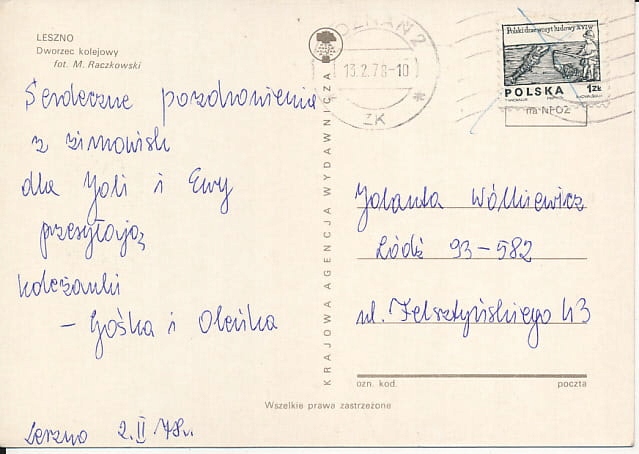 LESZNO
Dworzec kolejowy
fot. M. Raczkowski
Serdeczne pozdrowienia
z zimowisk
dla Joli i Ewy
przesyłają
koleżanki
- Gośka i Oleńka
Leszno 2.II 78r.
KRAJOWA AGENCJA WYDAWNICZA
POZNAŃ 2
13.2.78-10
ZK
Polski drzeworyt ludowy XVI w.
POLSKA 1ZŁ
na NFOZ
Jolanta Wólkiewicz
Łódź 93-582
ul. Felsztyńskiego 43
ozn. kod. poczta
Wszelkie prawa zastrzeżone